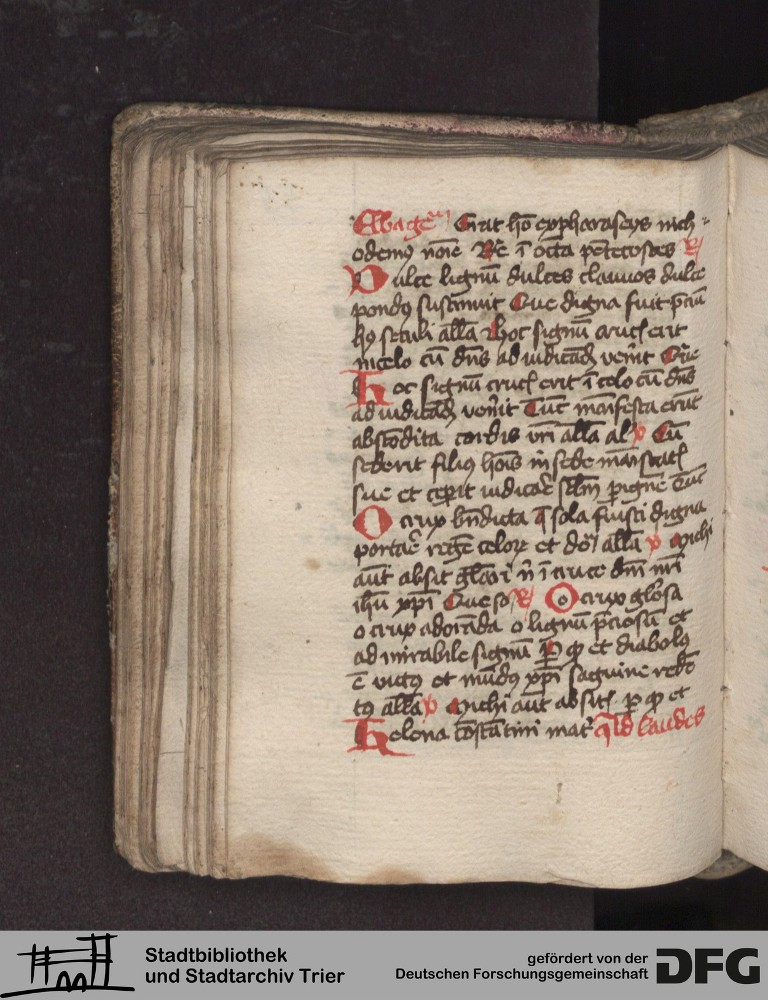 Ewāge Erat hō ex phariseys nich-
odemꝯ noīe Re ī octa pentecostes R
Dulce lignū dulces clauos dulce
pondꝯ sustinuit Que digna fuit p̄ciū
hꝯ seculi all̄a Hoc signū crucꝭ erit
in celo cū dn̄s ad iudicādꝫ venīt
Hoc signū crucꝭ erit ī celo cū dn̄s
ad iudicādꝫ venīt Tūc manifesta erūt
abscōdita cordis vr̄i all̄a all̄ v Cū
sederit filiꝯ hoīs in sede maiestatꝭ
sue et ceperit iudicare sclm̄ p igne Tūc
O crux bn̄dicta q̄ sola fuisti digna
portare regē celoꝝ et dom̄ all̄a v Michi
aut absit gl̄ari nˀ ī cruce dm̄ nr̄i
ihū xp̄i Que so R O crux gl̄osa
o crux adorāda o lignū p̄ciosū et
admirabile signū P qꝫ et diabolꝯ
ē victꝯ et mūdꝯ xp̄i saguine redē
tꝯ all̄a v Michi aut absit P qꝫ et
Helena cōstātini mat Ad laudes
Stadtbibliothek
und Stadtarchiv Trier
gefördert von der
Deutschen Forschungsgemeinschaft DFG